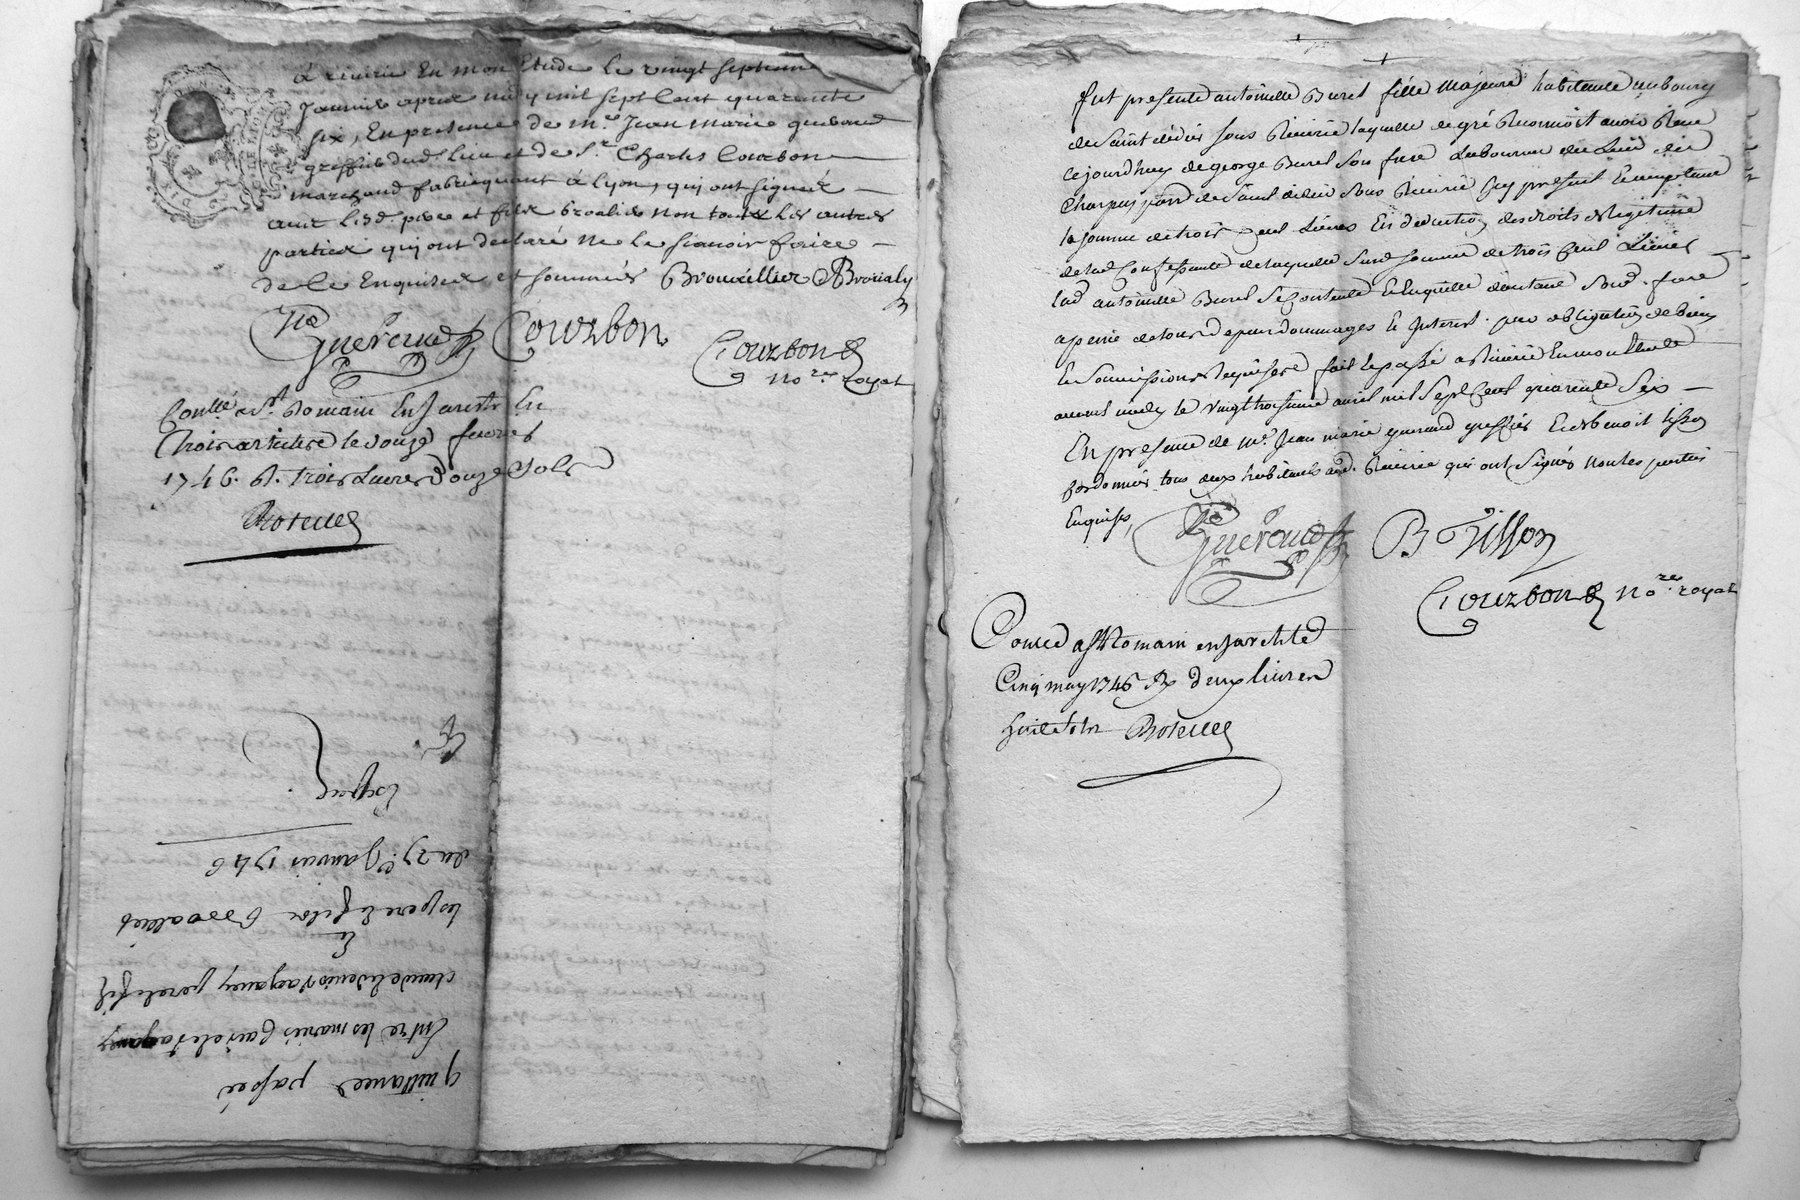 à riverie En mon Etude le vingt septieme
Janvier apres midy mil sept Cent quarante
six, En presence de m.re Jean Marie gueraud
greffier dud. lieu et de S.r Charles Courbon
marchand fabriquant à lyon, qui ont signéz
avec lesd. pere et fils broalier non toutes les autres
parties qui ont declaré ne le sçavoir faire
de ce Enquises et sommées Brouvillier Brovaly
Gueraud Courbon
Courbon
no.re royal
Conllé a St. Romain En Jarests Le
douze fevrier
1746. R. trois Livres Douze Sols
quittance passée
Entre les mariés
claude pere et fils
Et
les pere et fils Broallier
du 27.e Janvier 1746
Exped.
fut presente antoinette Burel fille Majeure habitante au bourg
de Saint didier sous Riverie laquelle de gré Reconnoit avoir Receu
cejourdhuy de george Burel son frere Laboureur du Lieu de
de Saint didier sous Riverie icy present Et acceptant
la somme de trois Cent Livres En deduction des droits de legitime
de lad. Confessante de laquelle susd. somme de trois Cent Livres
lad. antoinette Burel se Contente Et En quitte d'autant sond. frere
a peine de tous depens dommages Et Interest. par obligation de biens
Et Soumissions Requises fait Et passé a Riverie En mon Etude
avant midy le vingt troisieme avril mil Sept Cent quarente Six
En presence de m.e Jean marie gueraud greffier Et de benoit tisson
Cordonnier tous deux habitants aud. Riverie qui ont Signés non les parties
Enquises,
Gueraud B Tisson
Courbon no.re royal
a St Romain en Jarest le
Cinq may 1746 R deux livres
huit sols